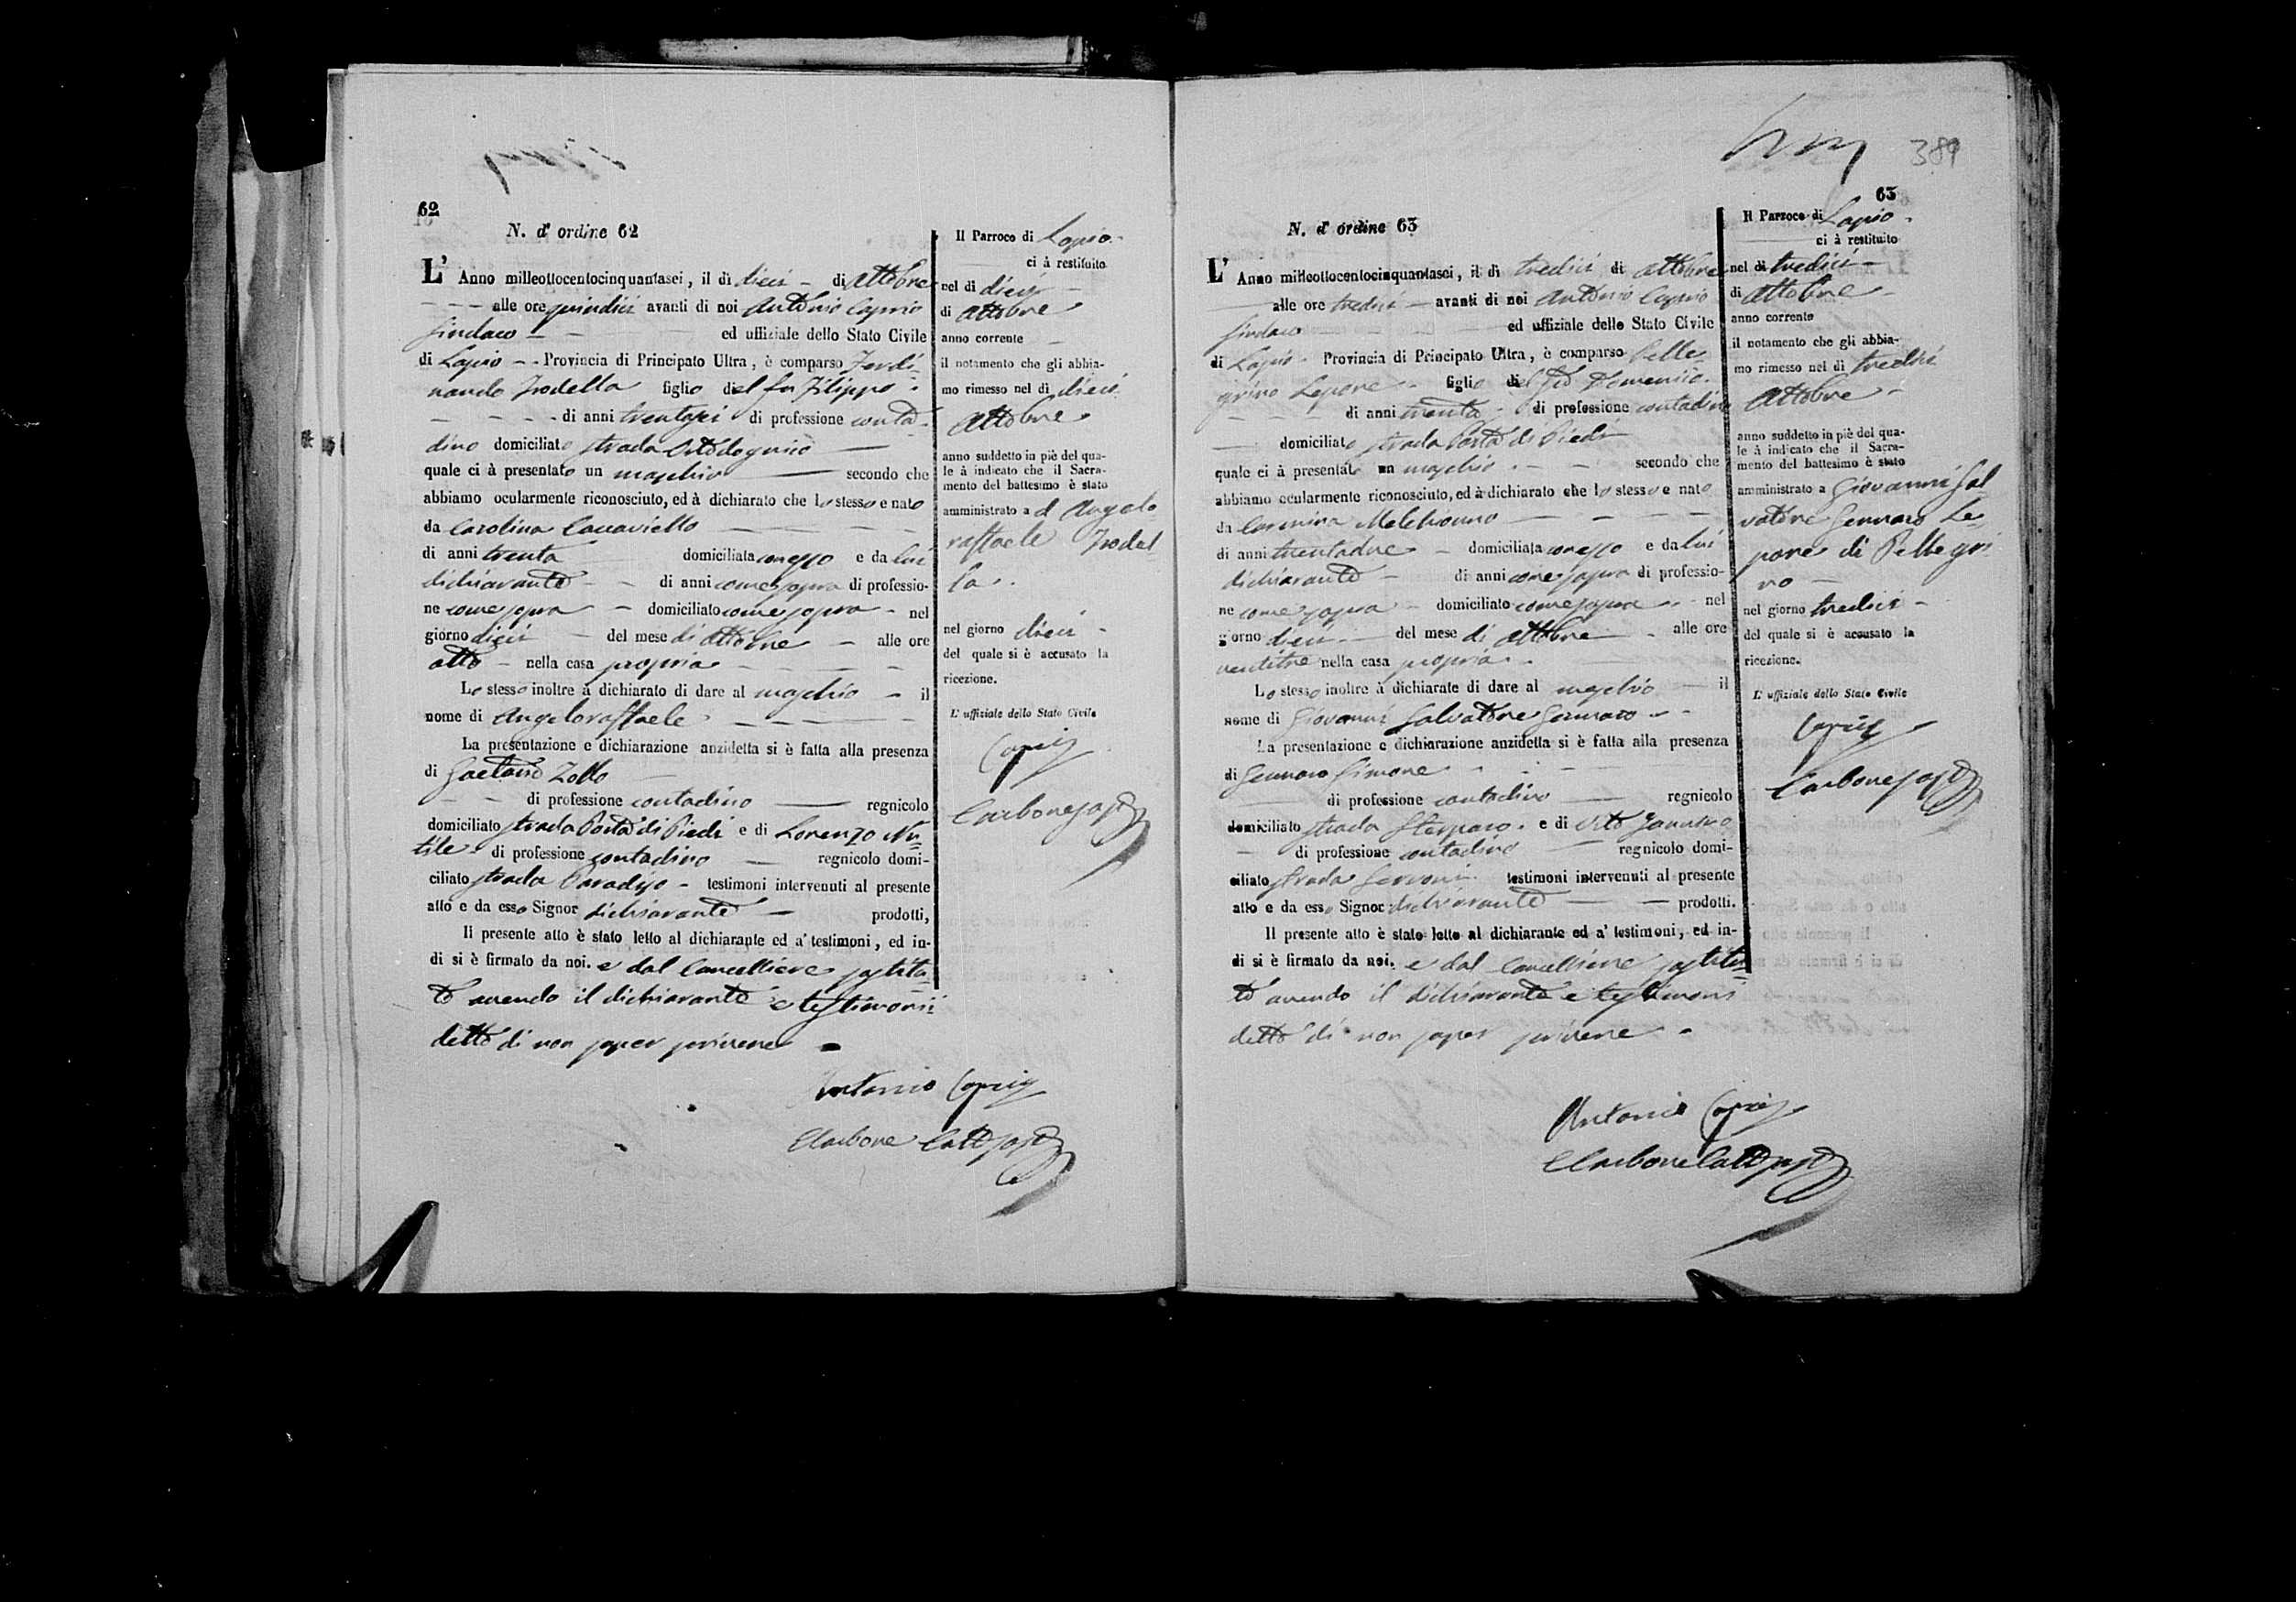 62
N. d' ordine 62
L' Anno milleottocentocinquantasei, il dì dieci di Attobre
alle ore quindici avanti di noi Antonio Caprio
Sindaco ed uffiziale dello Stato Civile
di Lapio Provincia di Principato Ultra, è comparso Ferdi=
nando Trodella figlio del fu Filippo
di anni trentasei di professione conta=
dino domiciliato strada
quale ci à presentato un maschio secondo che
abbiamo ocularmente riconosciuto, ed à dichiarato che lo stesso e nato
da Carolina Caccaviello
di anni trenta domiciliata con esso e da lui
dichiarante di anni come sopra di professio-
ne come sopra domiciliato come sopra nel
giorno dieci del mese di Attobre alle ore
otto nella casa propria
Lo stesso inoltre à dichiarato di dare al maschio il
nome di Angeloraffaele
La presentazione e dichiarazione anzidetta si è fatta alla presenza
di Gaetano Zollo
di professione contadino regnicolo
domiciliato strada Porta di Piedi e di Lorenzo Nu=
tile di professione contadino regnicolo domi-
ciliato strada Paradiso testimoni intervenuti al presente
atto e da esso Signor dichiarante prodotti,
Il presente atto è stato letto al dichiarante ed a' testimoni, ed in-
di si è firmato da noi. e dal Cancelliere sostitu=
to avendo il dichiarante e testimonii
detto di non saper scrivere
Antonio Caprio
Carbone Canc sost
Il Parroco di Lapio
ci à restituito
nel dì dieci
di Attobre
anno corrente
il notamento che gli abbia-
mo rimesso nel dì dieci
Attobre
anno suddetto in piè del qua-
le à indicato che il Sacra-
mento del battesimo è stato
amministrato a d Angelo
raffaele Trodel
la
nel giorno dieci
del quale si è accusato la
ricezione.
L' uffiziale dello Stato Civile
Caprio
Carbone sost
389
63
N. d' ordine 63
L' Anno milleottocentocinquantasei, il dì tredici di Attobre
alle ore tredici avanti di noi Antonio Caprio
Sindaco ed uffiziale dello Stato Civile
di Lapio Provincia di Principato Ultra, è comparso Pelle=
grino Lepore figlio del Domenico
di anni trenta di professione contadino
domiciliato strada Porta di Piedi
quale ci à presentato un maschio secondo che
abbiamo ocularmente riconosciuto, ed à dichiarato che lo stesso e nato
da Carmina Melchionno
di anni trentadue domiciliata con esso e da lui
dichiarante di anni come sopra di professio-
ne come sopra domiciliato come sopra nel
giorno dieci del mese di Attobre alle ore
ventitre nella casa propria
Lo stesso inoltre à dichiarato di dare al maschio il
nome di Giovanni Salvatore Gennaro
La presentazione e dichiarazione anzidetta si è fatta alla presenza
di Gennaro Simone
di professione contadino regnicolo
domiciliato strada e di Vito
di professione contadino regnicolo domi-
ciliato strada testimoni intervenuti al presente
atto e da esso Signor dichiarante prodotti.
Il presente atto è stato letto al dichiarante ed a' testimoni, ed in-
di si è firmato da noi. e dal Cancelliere sostitu=
to avendo il dichiarante e testimoni
detto di non saper scrivere
Antonio Caprio
Carbone Canc sost
Il Parroco di Lapio
ci à restituito
nel dì tredici
di Attobre
anno corrente
il notamento che gli abbia-
mo rimesso nel dì tredici
Attobre
anno suddetto in piè del qua-
le à indicato che il Sacra-
mento del battesimo è stato
amministrato a Giovanni Sal
vatore Gennaro Le=
pore di Pellegri
no
nel giorno tredici
del quale si è accusato la
ricezione.
L' uffiziale dello Stato Civile
Caprio
Carbone sost